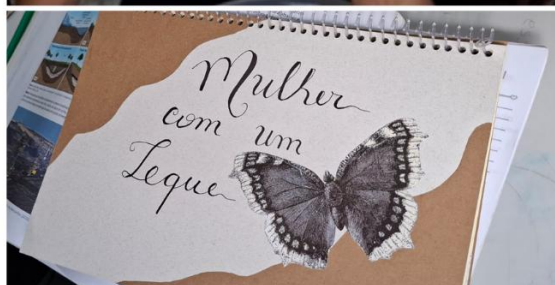 Mulher
com um
Leque